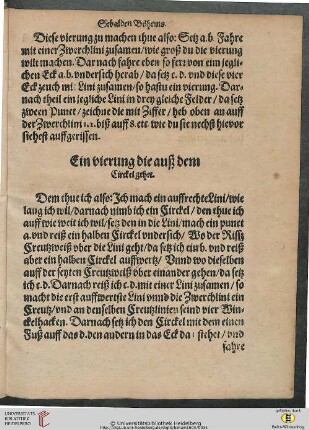 Sebalden Böhems.
Diese vierung zu machen thue also: Setz a.b. Fahre
mit einer Zwerchlini zusamen/wie groß du die vierung
wilt machen. Darnach fahre eben so fern von eim jegli-
chen Eck a.b. undersich herab/ da setz c.d. und diese vier
Eck zeuch mit Lini zusamen/ so hastu ein vierung. Dar-
nach theil ein jegliche Lini in drey gleiche Felder/ da setz
zween Punct/ zeichne die mit Ziffer/ heb oben an auff
der Zwerchlini 1.2. biß auff 8. etc. wie du sie nechst hievor
siehest auffgerissen.
Ein vierung die auß dem
Circkel gehet.
Dem thue ich also: Ich mach ein auffrechte Lini/ wie
lang ich wil/ darnach nimb ich ein Circkel/ den thue ich
auff wie weit ich wil/ setz den in die Lini/ mach ein punct
a. und reiß ein halben Circkel undersich/ Wo der Riß
Creutzweiß über die Lini geht/ da setz ich ein b. und reiß
aber ein halben Circkel auffwertz/ Unnd wo dieselben
auff der seyten Creutzweiß über einander gehen/ da setz
ich c.d. Darnach reiß ich c.d. mit einer Lini zusamen/ so
macht die erst auffwertste Lini unnd die Zwerchlini ein
Creutz/ und an denselben Creutzlinien seind vier Win-
ckelhacken. Darnach setz ich den Circkel mit dem einen
Fuß auff das d. den andern in das Eck da stehet/ und
fahre
UNIVERSITÄTS-
BIBLIOTHEK
HEIDELBERG
© Universitätsbibliothek Heidelberg
gefördert durch
Baden-Württemberg